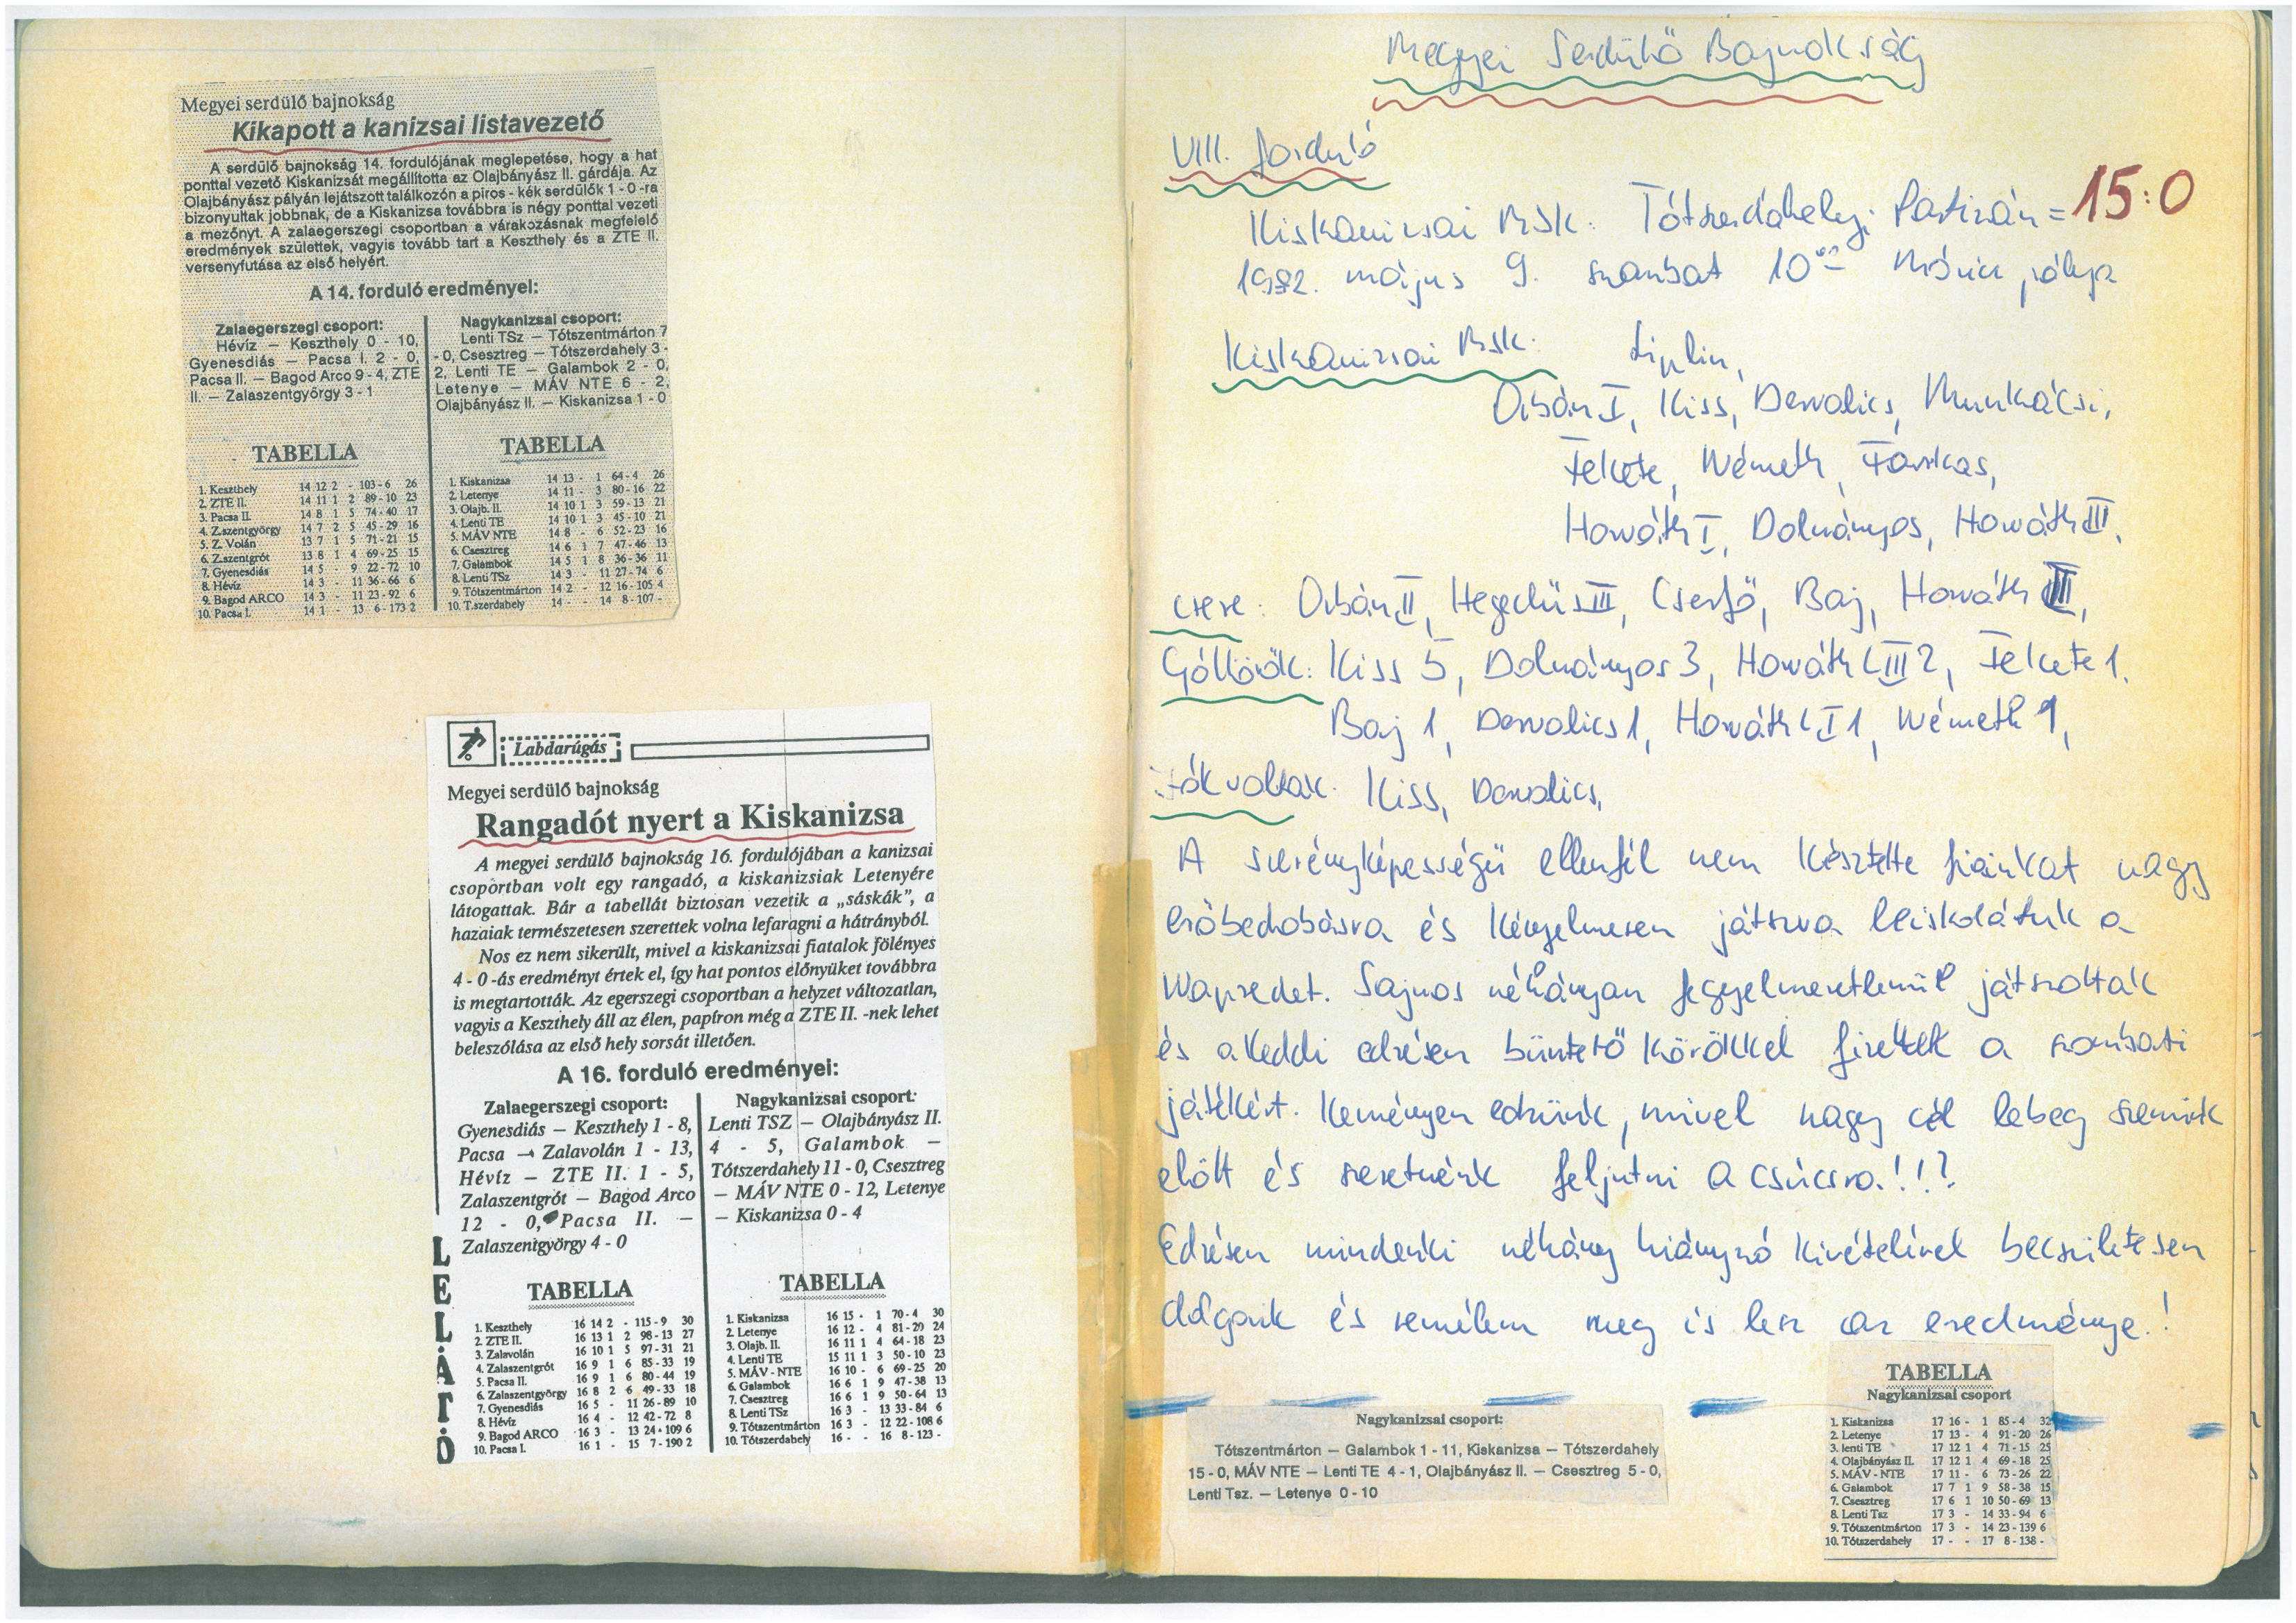 Megyei serdülő bajnokság
Kikapott a kanizsai listavezető
A serdülő bajnokság 14. fordulójának meglepetése, hogy a hat
ponttal vezető Kiskanizsát megállította az Olajbányász II. gárdája. Az
Olajbányász pályán lejátszott találkozón a piros - kék serdülők 1 - 0 -ra
bizonyultak jobbnak, de a Kiskanizsa továbbra is négy ponttal vezeti
a mezőnyt. A zalaegerszegi csoportban a várakozásnak megfelelő
eredmények születtek, vagyis tovább tart a Keszthely és a ZTE II.
versenyfutása az első helyért.
A 14. forduló eredményei:
Zalaegerszegi csoport:
Hévíz — Keszthely 0 - 10,
Gyenesdiás — Pacsa I. 2 - 0,
Pacsa II. — Bagod Arco 9 - 4, ZTE
II. — Zalaszentgyörgy 3 - 1
Nagykanizsai csoport:
Lenti TSz — Tótszentmárton 7
- 0, Csesztreg — Tótszerdahely 3 -
2, Lenti TE — Galambok 2 - 0,
Letenye — MÁV NTE 6 - 2,
Olajbányász II. — Kiskanizsa 1 - 0
TABELLA
1. Keszthely 14 12 2 - 103-6 26
2. ZTE II. 14 11 1 2 89-10 23
3. Pacsa II. 14 8 1 5 74-40 17
4. Z.szentgyörgy 14 7 2 5 45-29 16
5. Z. Volán 13 7 1 5 71-21 15
6. Z.szentgrót 13 8 1 4 69-25 15
7. Gyenesdiás 14 5 - 9 22-72 10
8. Hévíz 14 3 - 11 36-66 6
9. Bagod ARCO 14 3 - 11 23-92 6
10. Pacsa I. 14 1 - 13 6-173 2
TABELLA
1. Kiskanizsa 14 13 - 1 64-4 26
2. Letenye 14 11 - 3 80-16 22
3. Olajb. II. 14 10 1 3 59-13 21
4. Lenti TE 14 10 1 3 45-10 21
5. MÁV NTE 14 8 - 6 52-23 16
6. Csesztreg 14 6 1 7 47-46 13
7. Galambok 14 5 1 8 36-36 11
8. Lenti TSz 14 3 - 11 27-74 6
9. Tótszentmárton 14 2 - 12 16-105 4
10. T.szerdahely 14 - - 14 8-107 -
Labdarúgás
Megyei serdülő bajnokság
Rangadót nyert a Kiskanizsa
A megyei serdülő bajnokság 16. fordulójában a kanizsai
csoportban volt egy rangadó, a kiskanizsiak Letenyére
látogattak. Bár a tabellát biztosan vezetik a „sáskák”, a
hazaiak természetesen szerettek volna lefaragni a hátrányból.
Nos ez nem sikerült, mivel a kiskanizsai fiatalok fölényes
4 - 0 -ás eredményt értek el, így hat pontos előnyüket továbbra
is megtartották. Az egerszegi csoportban a helyzet változatlan,
vagyis a Keszthely áll az élen, papíron még a ZTE II. -nek lehet
beleszólása az első hely sorsát illetően.
A 16. forduló eredményei:
Zalaegerszegi csoport:
Gyenesdiás — Keszthely 1 - 8,
Pacsa — Zalavolán 1 - 13,
Hévíz — ZTE II. 1 - 5,
Zalaszentgrót — Bagod Arco
12 - 0, Pacsa II. —
Zalaszentgyörgy 4 - 0
Nagykanizsai csoport:
Lenti TSZ — Olajbányász II.
4 - 5, Galambok —
Tótszerdahely 11 - 0, Csesztreg
— MÁV NTE 0 - 12, Letenye
— Kiskanizsa 0 - 4
TABELLA
1. Keszthely 16 14 2 - 115-9 30
2. ZTE II. 16 13 1 2 98-13 27
3. Zalavolán 16 10 1 5 97-31 21
4. Zalaszentgrót 16 9 1 6 85-33 19
5. Pacsa II. 16 9 1 6 80-44 19
6. Zalaszentgyörgy 16 8 2 6 49-33 18
7. Gyenesdiás 16 5 - 11 26-89 10
8. Hévíz 16 4 - 12 42-72 8
9. Bagod ARCO 16 3 - 13 24-109 6
10. Pacsa I. 16 1 - 15 7-190 2
TABELLA
1. Kiskanizsa 16 15 - 1 70-4 30
2. Letenye 16 12 - 4 81-20 24
3. Olajb. II. 16 11 1 4 64-18 23
4. Lenti TE 15 11 1 3 50-10 23
5. MÁV - NTE 16 10 - 6 69-25 20
6. Galambok 16 6 1 9 47-38 13
7. Csesztreg 16 6 1 9 50-64 13
8. Lenti TSz 16 3 - 13 33-84 6
9. Tótszentmárton 16 3 - 12 22-108 6
10. Tótszerdahely 16 - - 16 8-123 -
LELÁTÓ
Megyei Serdülő Bajnokság
VIII. forduló
Kiskanizsai Msk. Tótszerdahelyi Partizán = 15:0
1992. május 9. szombat 10⁰⁰ Móricz pálya
Kiskanizsai Msk. Liplin,
Orbán I, Kiss, Dervalics, Munkácsi,
Fekete, Németh, Farkas,
Horváth I, Dolmányos, Horváth III,
csere: Orbán II, Hegedüs III, Cserfő, Baj, Horváth II,
Góllövők: Kiss 5, Dolmányos 3, Horváth L III 2, Fekete 1.
Baj 1, Dervalics 1, Horváth L I 1, Németh 1,
Jók voltak: Kiss, Dervalics,
A szerényképességű ellenfél nem késztette fiainkat nagy
erőbedobásra és kényelmesen játszva leiskolátuk a
Wapzedet. Sajnos néhányan fegyelmezetlenül játszottak
és a keddi edzésen büntető körökkel fizettek a szombati
játékért. Keményen edzünk, mivel nagy cél lebeg szemünk
előtt és szeretnénk feljutni a csúcsra!!!?
Edzésen mindenki néhány hiányzó kivételével becsületesen
dolgozik és remélem meg is lesz az eredménye.!
Nagykanizsai csoport:
Tótszentmárton — Galambok 1 - 11, Kiskanizsa — Tótszerdahely
15 - 0, MÁV NTE — Lenti TE 4 - 1, Olajbányász II. — Csesztreg 5 - 0,
Lenti Tsz. — Letenye 0 - 10
TABELLA
Nagykanizsai csoport
1. Kiskanizsa 17 16 - 1 85-4 32
2. Letenye 17 13 - 4 91-20 26
3. lenti TE 17 12 1 4 71-15 25
4. Olajbányász II. 17 12 1 4 69-18 25
5. MÁV - NTE 17 11 - 6 73-26 22
6. Galambok 17 7 1 9 58-38 15
7. Csesztreg 17 6 1 10 50-69 13
8. Lenti Tsz 17 3 - 14 33-94 6
9. Tótszentmárton 17 3 - 14 23-139 6
10. Tótszerdahely 17 - - 17 8-138 -